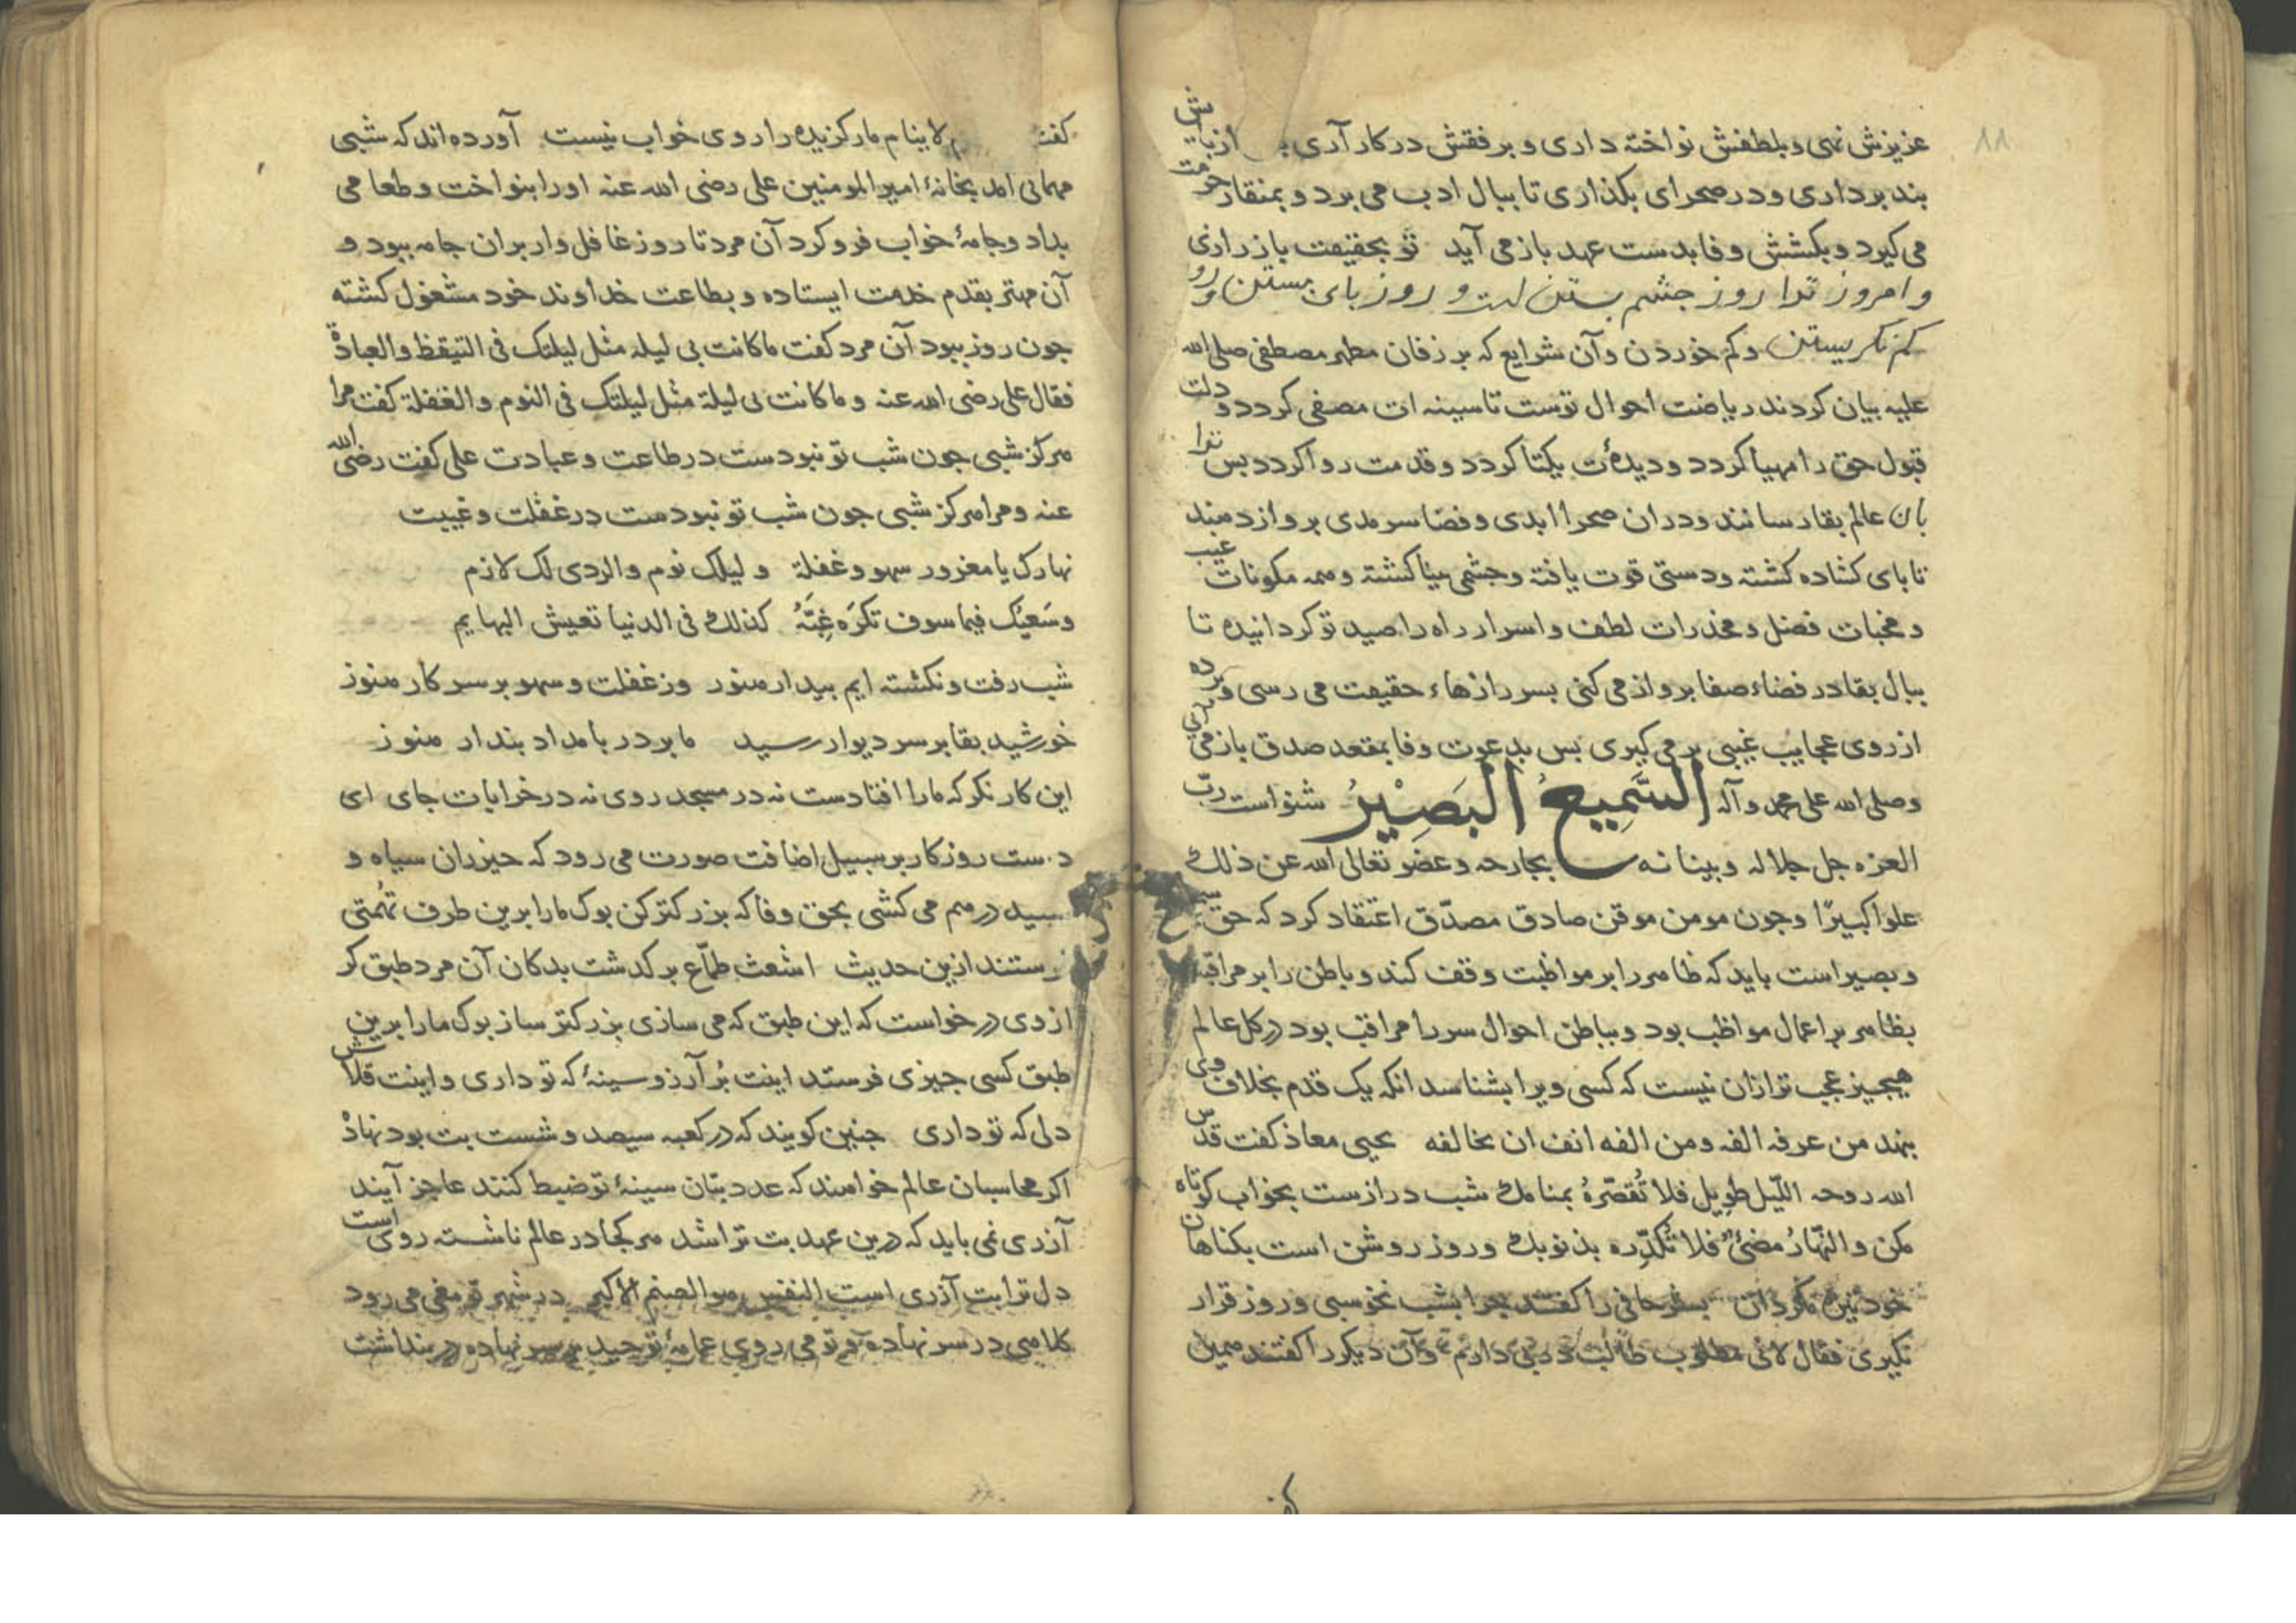 ۸۸
عزیزش نهی و بلطفش نواخته داری و برفقش در کار آری از پاش
بند برداری و در صحرای بکذاری تا ببال ادب می برد و بمنقار حرمت
می کیرد و بکشش وفا بدست عهد باز می آید تو بحقیقت باز رازی
و امروز ترا روز جشم بستن است و روز بای بستن و رو
کم نکریستن و کم خوردن و آن شرایع که بر زفان مطهر مصطفی صلی الله
علیه بیان کردند ریاضت احوال توست تا سینه ات مصفی کردد و دلت
قبول حق را مهیا کردد و دیدهٔ ت یکتا کردد و قدمت روا کردد بس ترا
بان عالم بقا رسانند و در ان صحرا ابدی و فضا سرمدی برواز دهند
تا بای کشاده کشته و دستی قوت یافته و جشمی بینا کشته و همه مکونات غیب
و مخبات فضل و مخدرات لطف و اسرار راه را صید تو کردانیده تا
ببال بقا در فضاء صفا برواز می کنی بسر رازهاء حقیقت می رسی و برده
از روی عجایب غیبی بر می کیری بس بدعوت وفا بمقعد صدق باز می آیی
وصلی الله علی محمد و آله السَّمِیعُ الْبَصِیْرُ شنواست ربّ
العزه جل جلاله و بینا نه بجارحه و عضو تعالی الله عن ذلک
علوا کبیرًا و جون مومن موقن صادق مصدّق اعتقاد کرد که حق سمیع
و بصیر است باید که ظاهر را بر مواظبت وقف کند و باطن را بر مراقبه
بظاهر بر اعمال مواظب بود و بباطن احوال سر را مراقب بود در کل عالم
هیجیز عجب تر ازان نیست که کسی ویرا بشناسد انکه یک قدم بخلاف وی
بنهد من عرفه الفه ومن الفه انف ان یخالفه یحیی معاذ کفت قدس
الله روحه اللّیل طویل فلا تُقصّرهُ بمنامک شب درازست بخواب کوتاه
مکن و النّهارُ مضیٌ فلا تُکدّره بذنوبک و روز روشن است بکناهان
خود تیره مکردان بشر حافی را کفتند جرا بشب نخوسبی و روز قرار
نکیری فقال لانی مطلوب طالب در بی دارم و آن دیکر را کفتند همین
کفت لا ینام مار کزیده را روی خواب نیست آورده اند که شبی
مهمانی امد بخانهٔ امیر المومنین علی رضی الله عنه اورا بنواخت و طعامی
بداد و جامهٔ خواب فرو کرد آن مرد تا روز غافل وار بران جامه ببود و
آن مهتر بقدم خدمت ایستاده و بطاعت خداوند خود مشغول کشته
جون روز ببود آن مرد کفت ما کانت بی لیله مثل لیلتک فی التیقظ والعبادة
فقال علی رضی الله عنه و ما کانت لی لیلة مثل لیلتک فی النوم والغفلة کفت مرا
هرکز شبی جون شب تو نبودست در طاعت و عبادت علی کفت رضی الله
عنه و مرا هرکز شبی جون شب تو نبودست در غفلت و غیبت
نهارک یا مغرور سهو و غفلة و لیلک نوم والردی لک لازم
وسَعیُک فیما سوف تکرَه غِبَّهُ کذلک فی الدنیا تعیش البهایم
شب رفت و نکشته ایم بیدار هنوز وز غفلت و سهو بر سر کار هنوز
خورشید بقا بر سر دیوار رسید ما بر در بامداد بندار هنوز
این کار نکر که مارا افتادست نه در مسجد روی نه در خرابات جای ای
دست روزکار بر سبیل اضافت صورت می رود که حیزران سیاه و
سبید درهم می کشی بحق وفا که بزرکتر کن بوک مارا برین طرف تُهمتی
فرستند ازین حدیث اشعث طمّاع بر کدشت بدکان آن مرد طبق کر
از وی درخواست که این طبق که می سازی بزرکتر ساز بوک مارا برین
طبق کسی جیزی فرستد اینت بُر آرزو سینهٔ که تو داری و اینت قلاش
دلی که تو داری جنین کویند که در کعبه سیصد و شست بت بود نهاذ
اکر محاسبان عالم خواهند که عدد بتان سینهٔ تو ضبط کنند عاجز آیند
آزری نمی باید که درین عهد بت تراشد هر کجا در عالم ناشسته روی است
دل ترا بت آزری است النفس هو الصنم الاکبر در شهر تو مغی می رود
کلاهی در سر نهاده و تو می روی عمامهٔ توحید بر سر نهاده در بنداشت
کفت